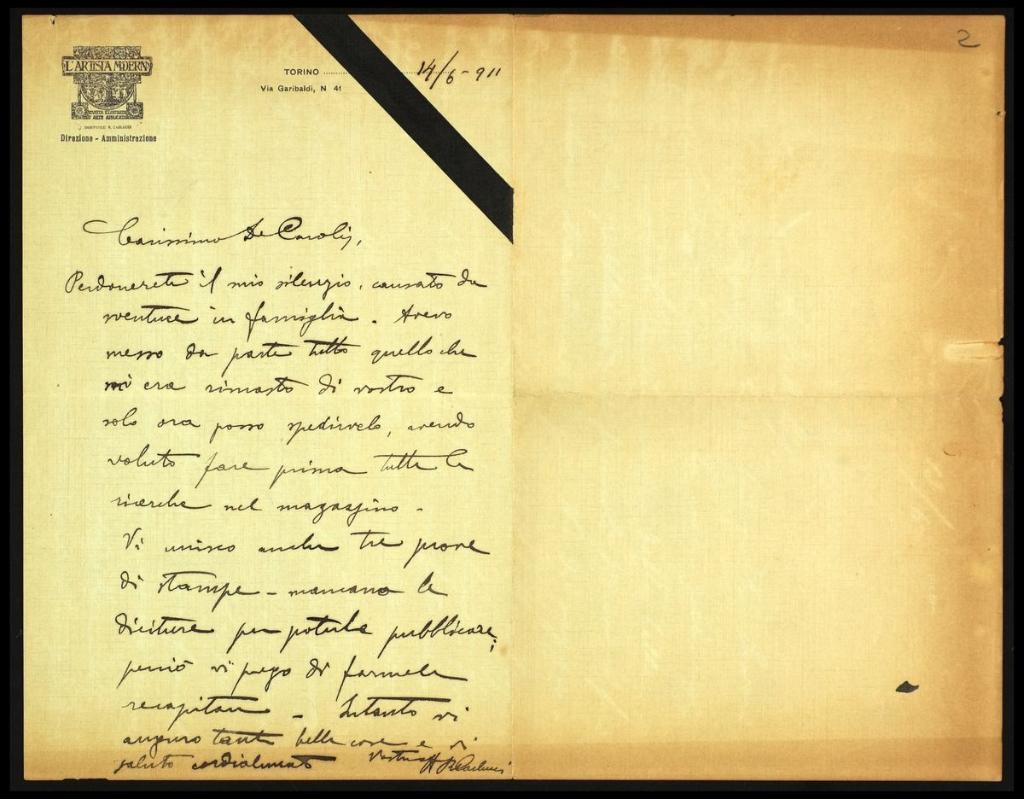 2
L'ARTISTA MODERNO
RIVISTA ILLUSTRATA
ARTE APPLICATA
Direzione - Amministrazione
TORINO 14/6-911
Via Garibaldi, N 41
Carissimo De Carolis,
Perdonerete il mio silenzio, causato da
sventure in famiglia. Avevo
messo da parte tutto quello che
mi era rimasto di vostro e
solo ora posso spedirvelo, avendo
voluto fare prima tutte le
ricerche nel magazzino -
Vi unisco anche tre prove
di stampe - mancano le
diciture per poterle pubblicare;
perciò vi prego di farmele
recapitare - Intanto vi
auguro tante belle cose e vi
saluto cordialmente Vostro